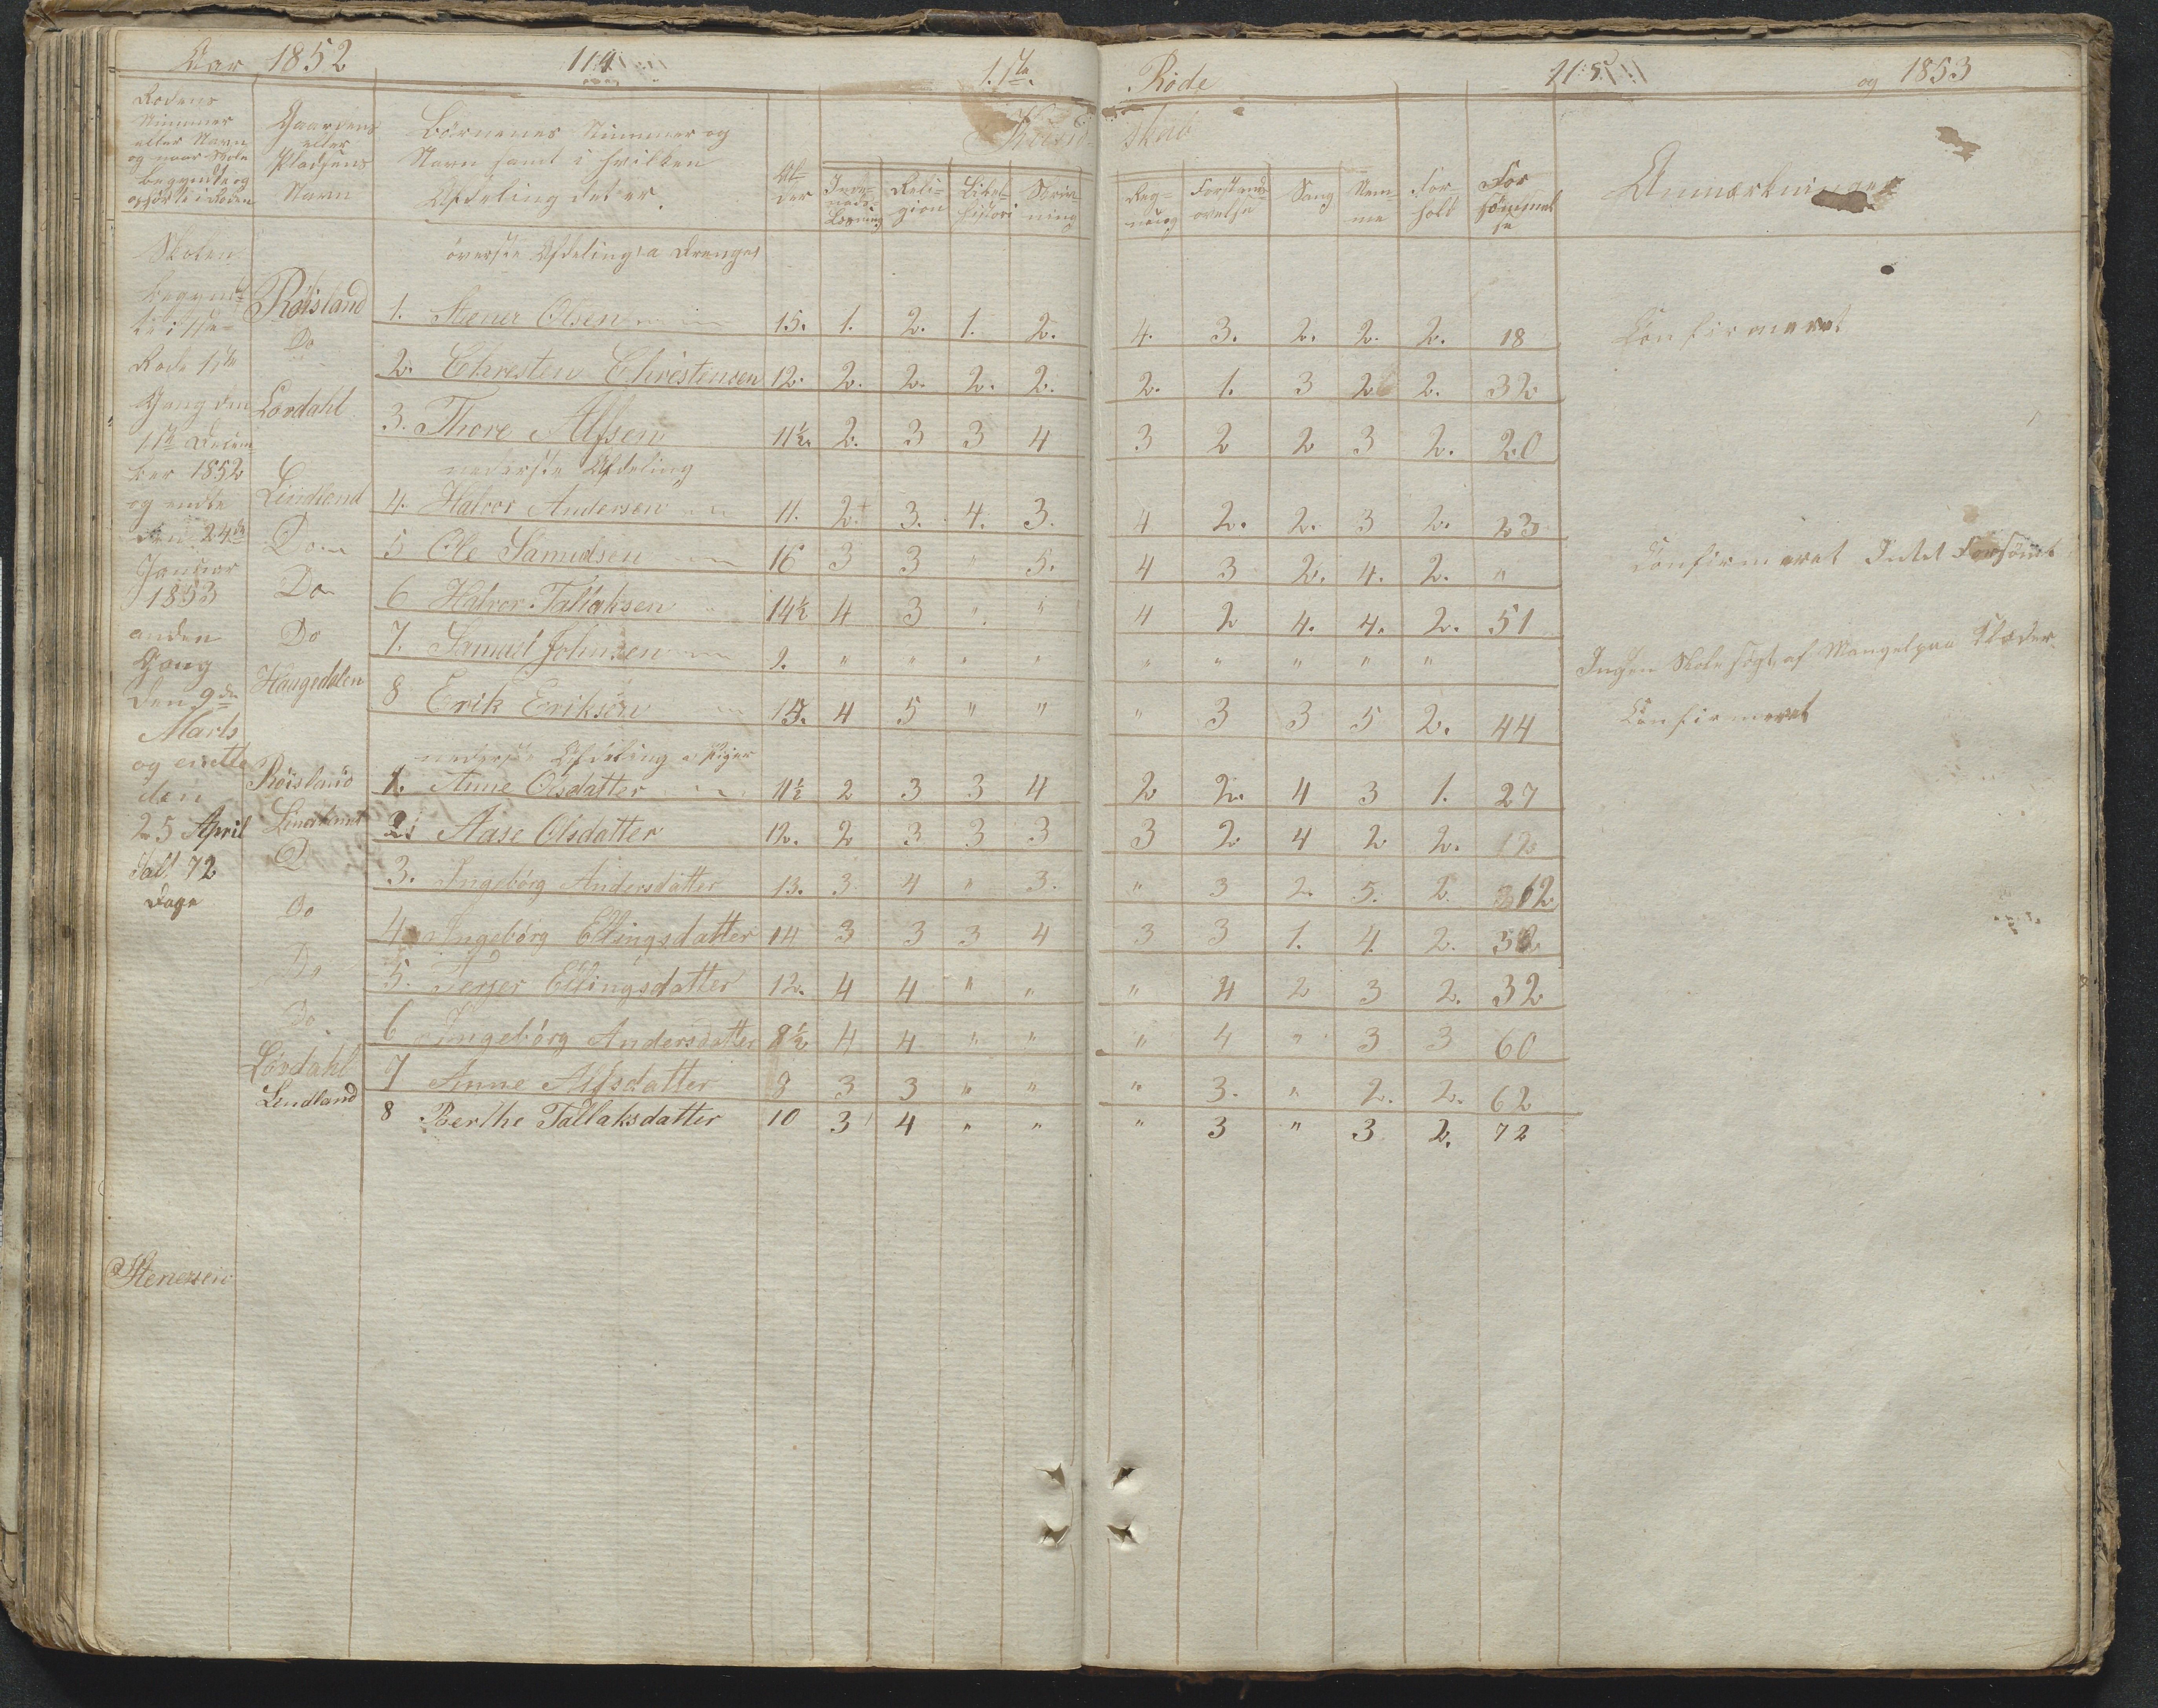 Aar 1852 114 1.ste Rode 115 og 1853
Rodens Nummer eller Navn og naar Skole begyndte og ophørte i Roden
Gaardens eller Pladsens Navn
Børnenes Nummer og Navn samt i hvilken Afdeling det er.
Alder
Religion
Skrivning
Regning
Sang
Nemme
Forhold
Forsømmelse
Anmærkninger
øverste Afdeling a Drenge
Røisland 1. Stener Olsen 15. 1. 2. 1. 2. 4. 3. 2. 2. 2. 18 Confirmeret
Do 2. Chresten Chrestensen 12. 2. 2. 2. 2. 2. 1. 3 2 2. 32
Lovdahl 3. Thore Alfsen 11½. 2. 3 3 4 3 2 2 3 2. 20
nederste Afdeling
Lindland 4. Halvor Andersen 11. 2. 3. 4. 3. 4 2. 2. 3 2. 23
Do 5 Ole Samuelsen 16 3 3 " 5. 4 3 2. 4. 2. " Confirmeret Intet Forsømt
Do 6 Halvor Tallaksen 14½ 4 3 " " 4 2 4. 4. 2. 51
Do 7. Samuel Johnsen 9. " " " " " " " " " Ingen Skole søgt af Mangel paa Klæder
Haugedalen 8 Erik Eriksen 15. 4 5 " " " 3 3 5 2. 44 Confirmeret
nederste Afdeling a Piger
Røisland 1. Anne Olsdatter 11½ 2 3 3 4 2 2. 4 3 1. 27
Lindland 2. Aase Olsdatter 12. 2 3 3 3 3 2 4 2 2. 12
D 3. Ingebørg Andersdatter 13. 3 4 " 3. " 3 2. 5. 2 62
Do 4 Ingebørg Ellingsdatter 14 3 3 3 4 3 3 1. 4. 2.
Do 5. Terjer Ellingsdatter 12. 4 4 " " " 4 2 3 2. 32
Do 6 Ingebørg Andersdatter 8½ 4 4 " " " 4 " 3 3 60
Lovdahl 7 Anne Alfsdatter 9 3 3 " " " 3. " 2. 2. 62
Lendland 8 Berthe Tallaksdatter 10 3 4 " " " 3 " 3 2. 72
Skolen
begynd
te i 1ste
Rode 1ste
Gang den
11te Decem
ber 1852
og endte
den 24de
Januar
1853
anden
Gang
den 9de
Marts
og endte
den
25 April
Talt 72
Dage
Stenersen